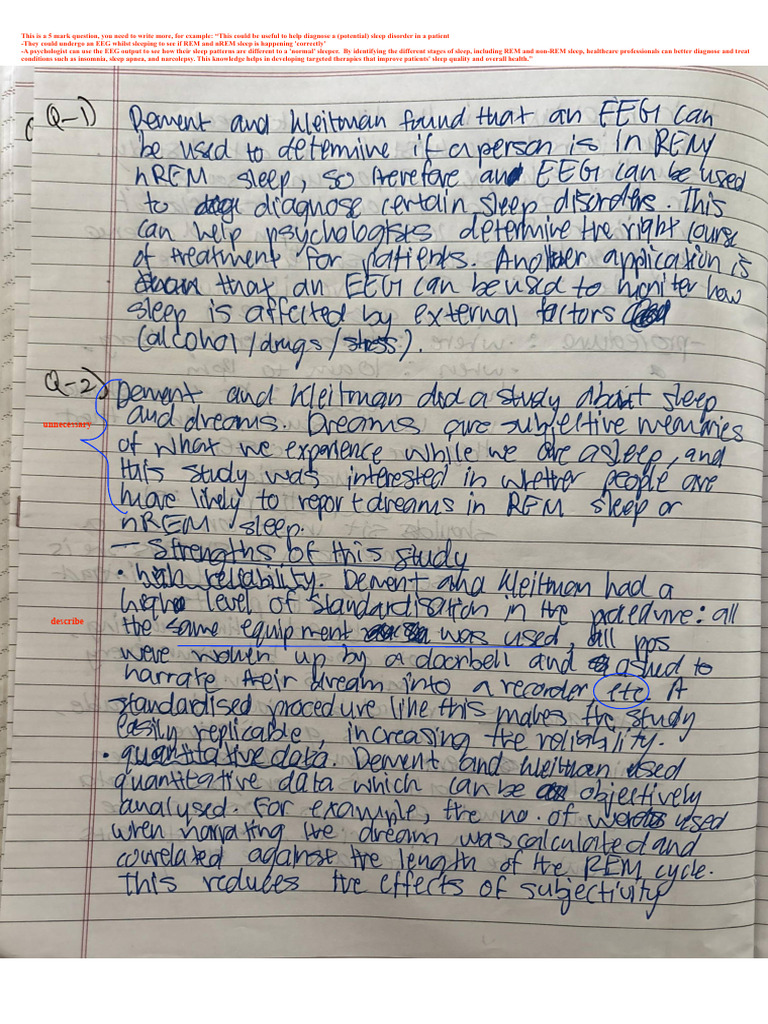 This is a 5 mark question, you need to write more, for example: "This could be useful to help diagnose a (potential) sleep disorder in a patient
-They could undergo an EEG whilst sleeping to see if REM and nREM sleep is happening 'correctly'
-A psychologist can use the EEG output to see how their sleep patterns are different to a 'normal' sleeper. By identifying the different stages of sleep, including REM and non-REM sleep, healthcare professionals can better diagnose and treat
conditions such as insomnia, sleep apnea, and narcolepsy. This knowledge helps in developing targeted therapies that improve patients' sleep quality and overall health."
Q-1) Dement and Kleitman found that an EEG can
be used to determine if a person is in REM/
nREM sleep, so therefore an EEG can be used
to diagnose certain sleep disorders. This
can help psychologists determine the right course
of treatment for patients. Another application is
that an EEG can be used to moniter how
sleep is affected by external factors
(alcohol/drugs/stress).
Q-2) Dement and Kleitman did a study about sleep
and dreams. Dreams are subjective memories
unnecessary
of what we experience while we are asleep, and
this study was interested in whether people are
more likely to report dreams in REM sleep or
nREM sleep.
— Strengths of this study
• high reliability. Dement and Kleitman had a
high level of standardisation in the procedure: all
describe
the same equipment was used, all pps
were woken up by a doorbell and asked to
narrate their dream into a recorder etc. A
standardised procedure like this makes the study
easily replicable, increasing the reliability.
• quantitative data. Dement and Kleitman used
quantitative data which can be objectively
analysed. For example, the no. of words used
when narrating the dream was calculated and
correlated against the length of the REM cycle.
This reduces the effects of subjectivity